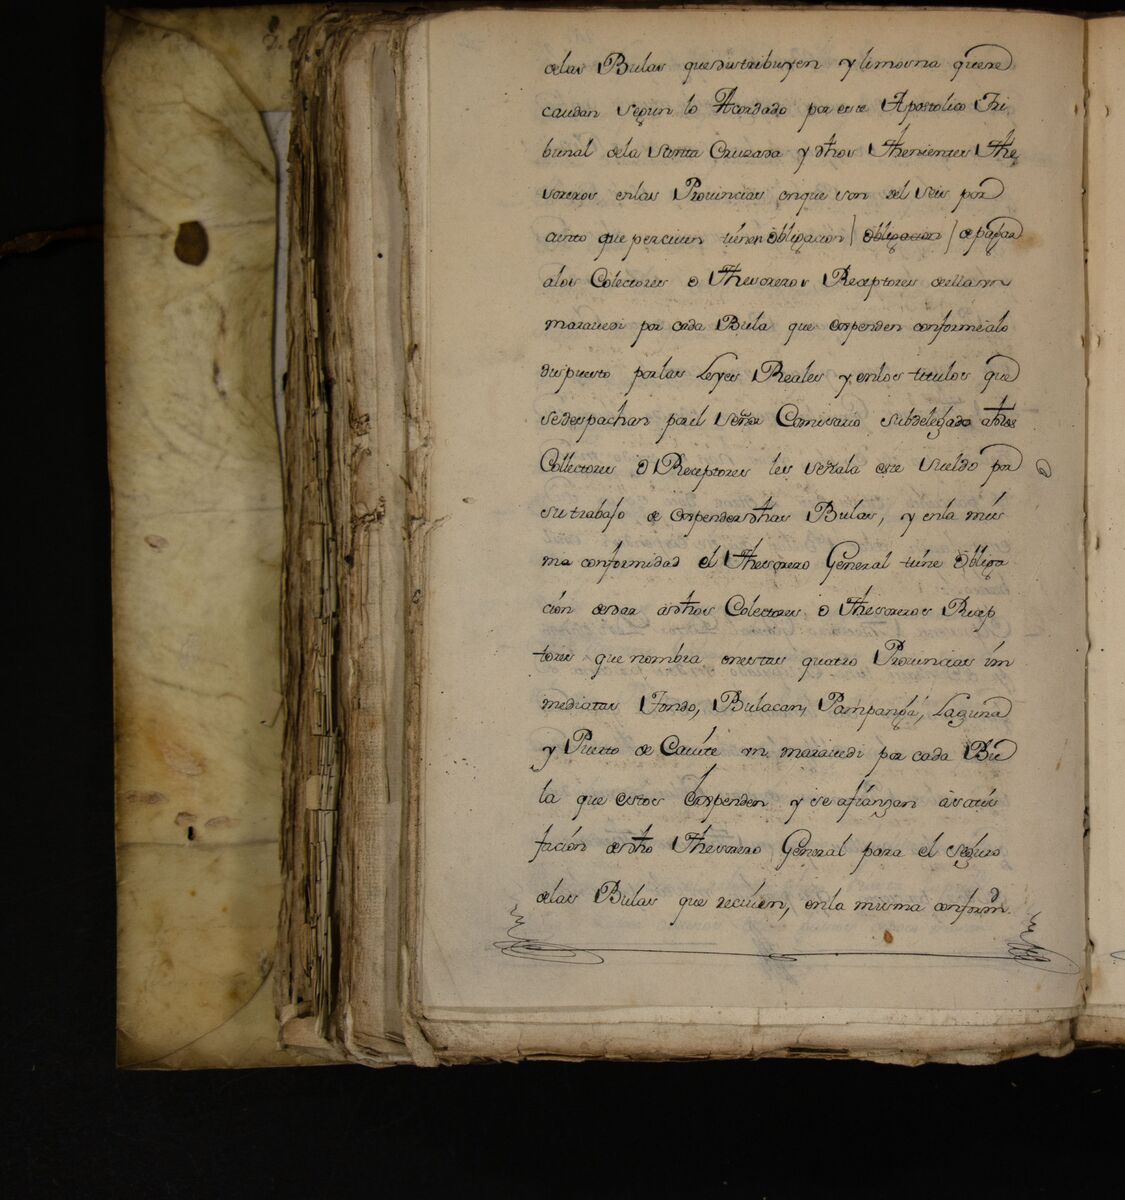 delas Bulas quedistribuyen y limosna quere
caudan segun lo Acordado por este Apostolico Tri
bunal dela Santa Cruzada y dhos Thenientes The
soreros enlas Provincias, enque son del seis por
ciento que perciven tienen obligacion / obligacion / depagar
alos Colectores o Thesoreros Receptores dellas vn
maravedi por cada Bula que expenden conforme alo
dispuesto porlas Leyes Reales y enlos titulos que
sedespachan por el Señor Comisario subdelegado adhos
Collectores o Receptores les señala este sueldo por
su trabajo de expender dhas Bulas, y enla mis
ma conformidad el Thesorero General tiene obliga
ción dedar adhos Colectores o Thesoreros Recep
tores que nombra enestas quatro Provincias im
mediatas Tondo, Bulacan, Pampanga, Laguna
y Puerto de Cavite vn maravedi por cada Bu
la que estos expenden y se afianzan asatis
facción dedho Thesorero General para el seguro
delas Bulas que reciven, enla misma conformd.